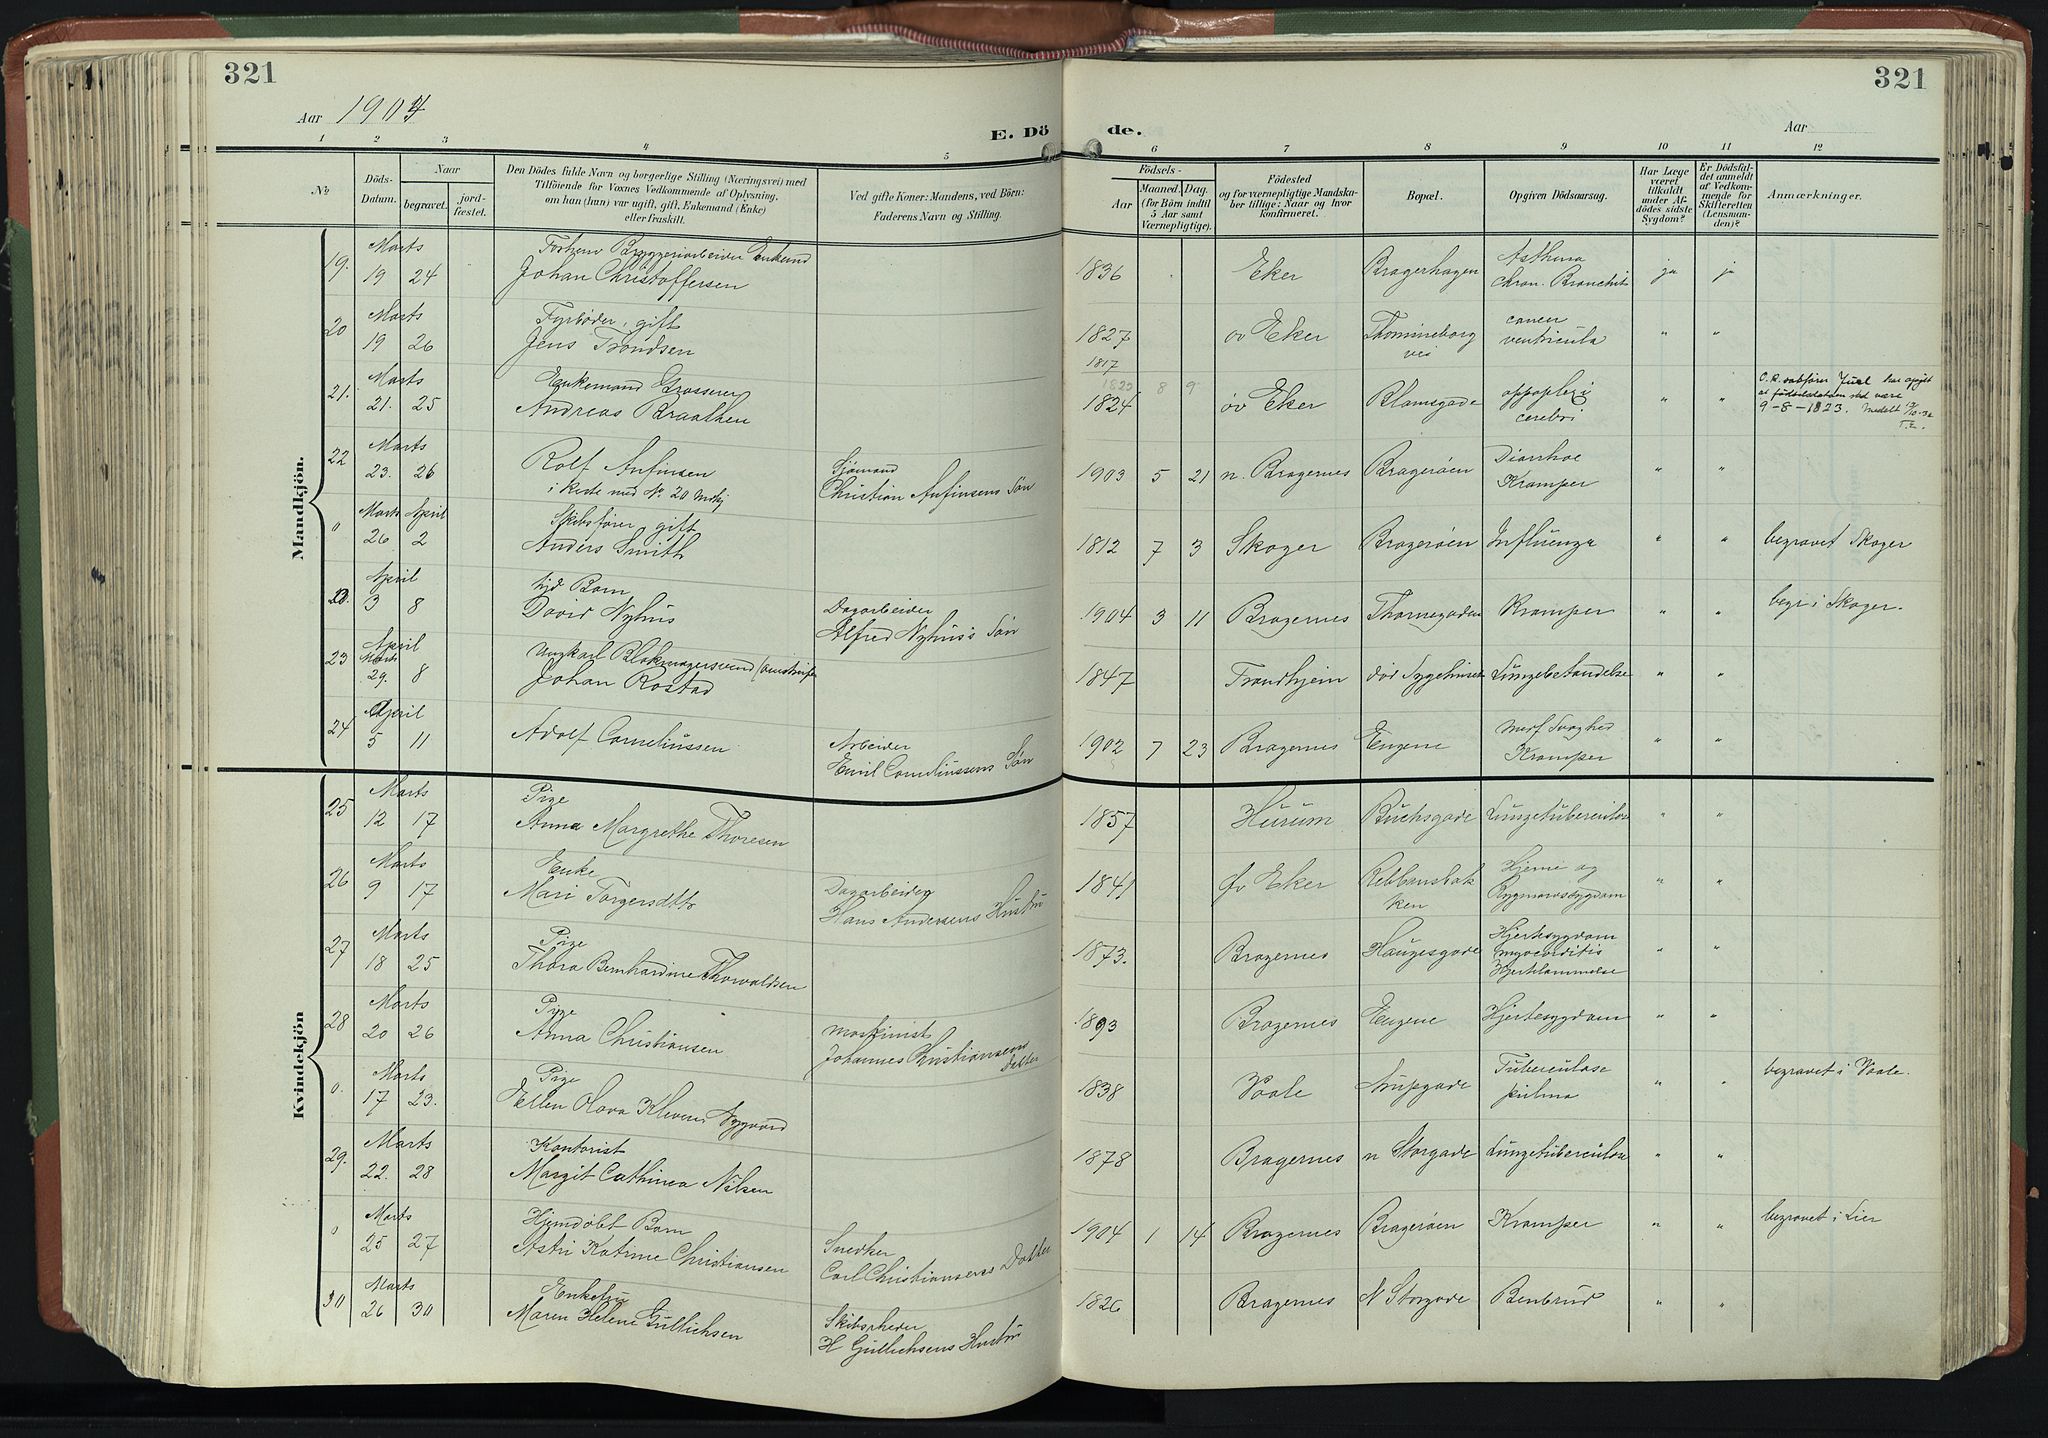 321
321
Aar 1904
E. Dö
de.
Aar
1 2 3 4 5 6 7 8 9 10 11 12
No
Döds-Datum.
Naar
begravet.
jord-fæstet.
Den Dödes fulde Navn og borgerlige Stilling (Næringsvei) med
Tilföiende for Voxnes Vedkommende af Oplysning,
om han (hun) var ugift, gift, Enkemand (Enke)
eller fraskilt.
Ved gifte Koner: Mandens, ved Börn:
Faderens Navn og Stilling.
Födsels-
Aar
Maaned. Dag.
(for Börn indtil
5 Aar samt
Værnepligtige).
Födested
og for værnepligtige Mandska-
ber tillige: Naar og hvor
konfirmeret.
Bopæl.
Opgiven Dödsaarsag.
Har Læge
været
tilkaldt
under Af-
dödes sidste
Sygdom?
Er Dödsfal-
det anmeldt
af Vedkom-
mende for
Skifteretten
(Lensman-
den)?
Anmærkninger.
Mandkjön.
19. Marts 19 24 Bryggeriarbeider Enkemd
Johan Christoffersen 1836 Eker Bragerhagen Asthma
chron. Bronchit ja ja
20 Marts 19 26 Fyrbøder, gift
Jens Trondsen 1827 øv Eker Thomineborg
vei cancer
ventricula " "
21. Marts 21. 25 Enkemand Grosserer
Andreas Braathen 1817
1823 8 9
1824 øv Eker Blomsgade appoplexi
cerebri " "
O.R.sakfører Juel har opgit
at fødselsdatoen skal være
9-8-1823. Meddelt
22 Marts 23. 26 Rolf Anfinsen
i kiste med No. 20 Mdkj
Sjømand
Christian Anfinsens Søn 1903 5 21 n. Bragernes Bragerøen Diarrhoe
Kramper " "
0 Marts 26 April 2 Skibsfører, gift
Anders Smith 1812 7 3 Skoger Bragerøen Influenza " " begravet Skoger
April 3 8 hjd Barn
David Nyhus
Dagarbeider
Alfred Nyhus's Søn 1904 3 11 Bragernes Thornegaden Kramper " " begr i Skoger.
23 April
Marts 29. 8 Ungkarl Blokmagersvend
Johan Rostad 1847 Trondhjem død Sygehuset Lungebetændelse " "
24 April 5 11 Adolf Corneliussen
Arbeider
Emil Corneliussens Søn 1902 7 23 Bragernes Engene medf Svaghed
Kramper " "
Kvindekjön
25 Marts 12 17 Pige
Anna Margrethe Thoresen 1857 Hurum Buchsgade Lungetuberculose " "
26 Marts 9 17 Enke
Mari Torgersdtr
Dagarbeider
Hans Andersens Hustru 1841 øv Eker Rebbansbak
ken Hjerne og
Rygmarvssygdom " "
27 Marts 18 25 Pige
Thora Bernhardine Thorvaldsen 1873. Bragernes Haugesgade Hjertesygdom
myocarditis
Hjertelammelse " "
28 Marts 20 26 Pige
Anna Christiansen
maskinist
Johannes Christiansens
Datter 1893 Bragernes Engene Hjertesygdom " "
0. Marts 17 23. Pige
Ellen Olava Klevens Nygaard 1838 Vaale Arupgade Tuberculose
" " begravet i Vaale.
29. Marts 22. 28 Kontorist
Margit Cathinca Nilsen 1878 Bragernes n Storgade Lungetuberculose " "
0 Marts 25 27 Hjemdøbt Barn
Astri Katrine Christiansen
Snedker
Carl Christiansens Datter 1904 1 14 Bragernes Bragerøen Kramper " " begravet i Lier
30 Marts 26 30 Enkefru
Maren Helene Gullichsen
Skibsrheder
H Gullichsens Hustru 1826 Bragernes N Storgade Benbrud " "